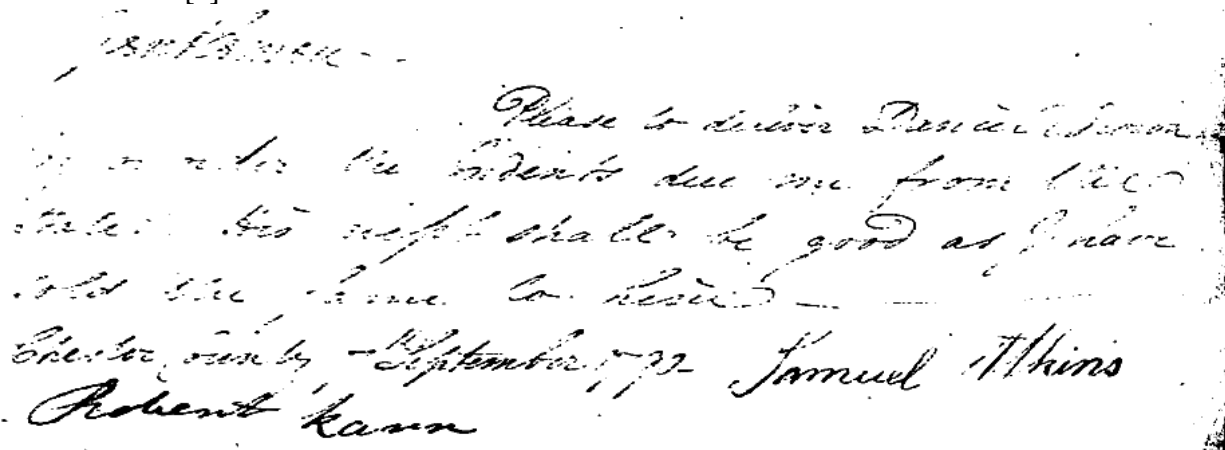 Gentlemen
Please to deliver Daniel
or order the Indents due me from the
State. His rect shall be good as I have
sold the same to him
Chester County September 1792 Samuel Atkins
Robert Karr